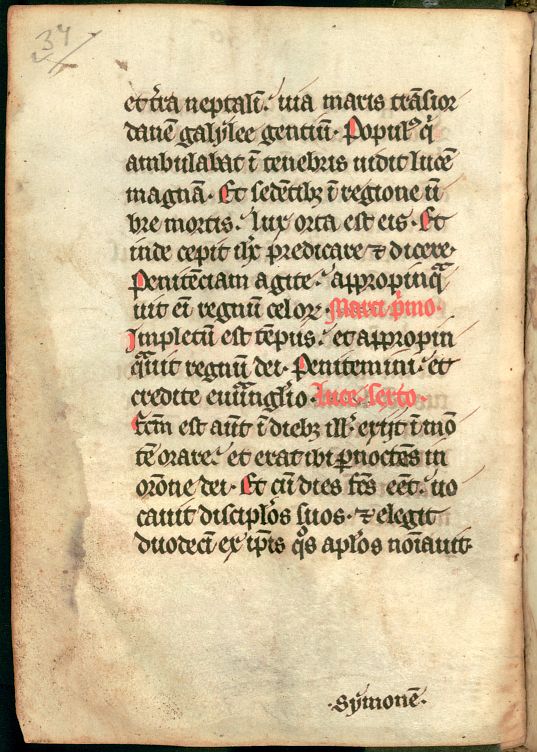 34
et t̄ra neptalī. uia maris trāsior
danē galylee gentiū. Popul9 q̇
ambulabat ī tenebris uidit lucē
magnā. Et sedētibȝ ī regione ū
bre mortis. lux orta est eis. Et
inde cepit ih̄c predicare ⁊ dicere.
Penitēciam agite. appropinq̇
uit eī regnū celoꝝ. Marci p̍mo.
Impletū est tēpus. et appropin
q̇uit regnū dei. Penitemini. et
credite euu̇anglio. Luce. sexto.
Fc̄m est aūt ī diebȝ ill'. exijt ī mō
tē orare. et erat ibi ꝑnoctās in
orōne dei. Et cū dies fc̄s eēt. uo
cauit discipl'os suos. ⁊ elegit
duodecī ex ip̄is q̊s ap̄los noīauit.
.Symonē.